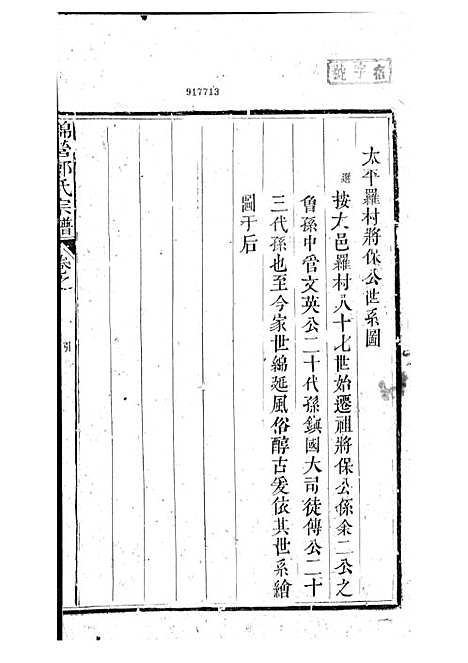 宿字號
917713
太平羅村將保公世系圖
選
按大邑羅村八十七世始遷祖將保公係余二公之
魯孫中管文英公二十代孫鎮國大司徒傅公二十
三代孫也至今家世綿延風俗醇古爰依其世系繪
圖于后
錦營郭氏宗譜
卷之一
引